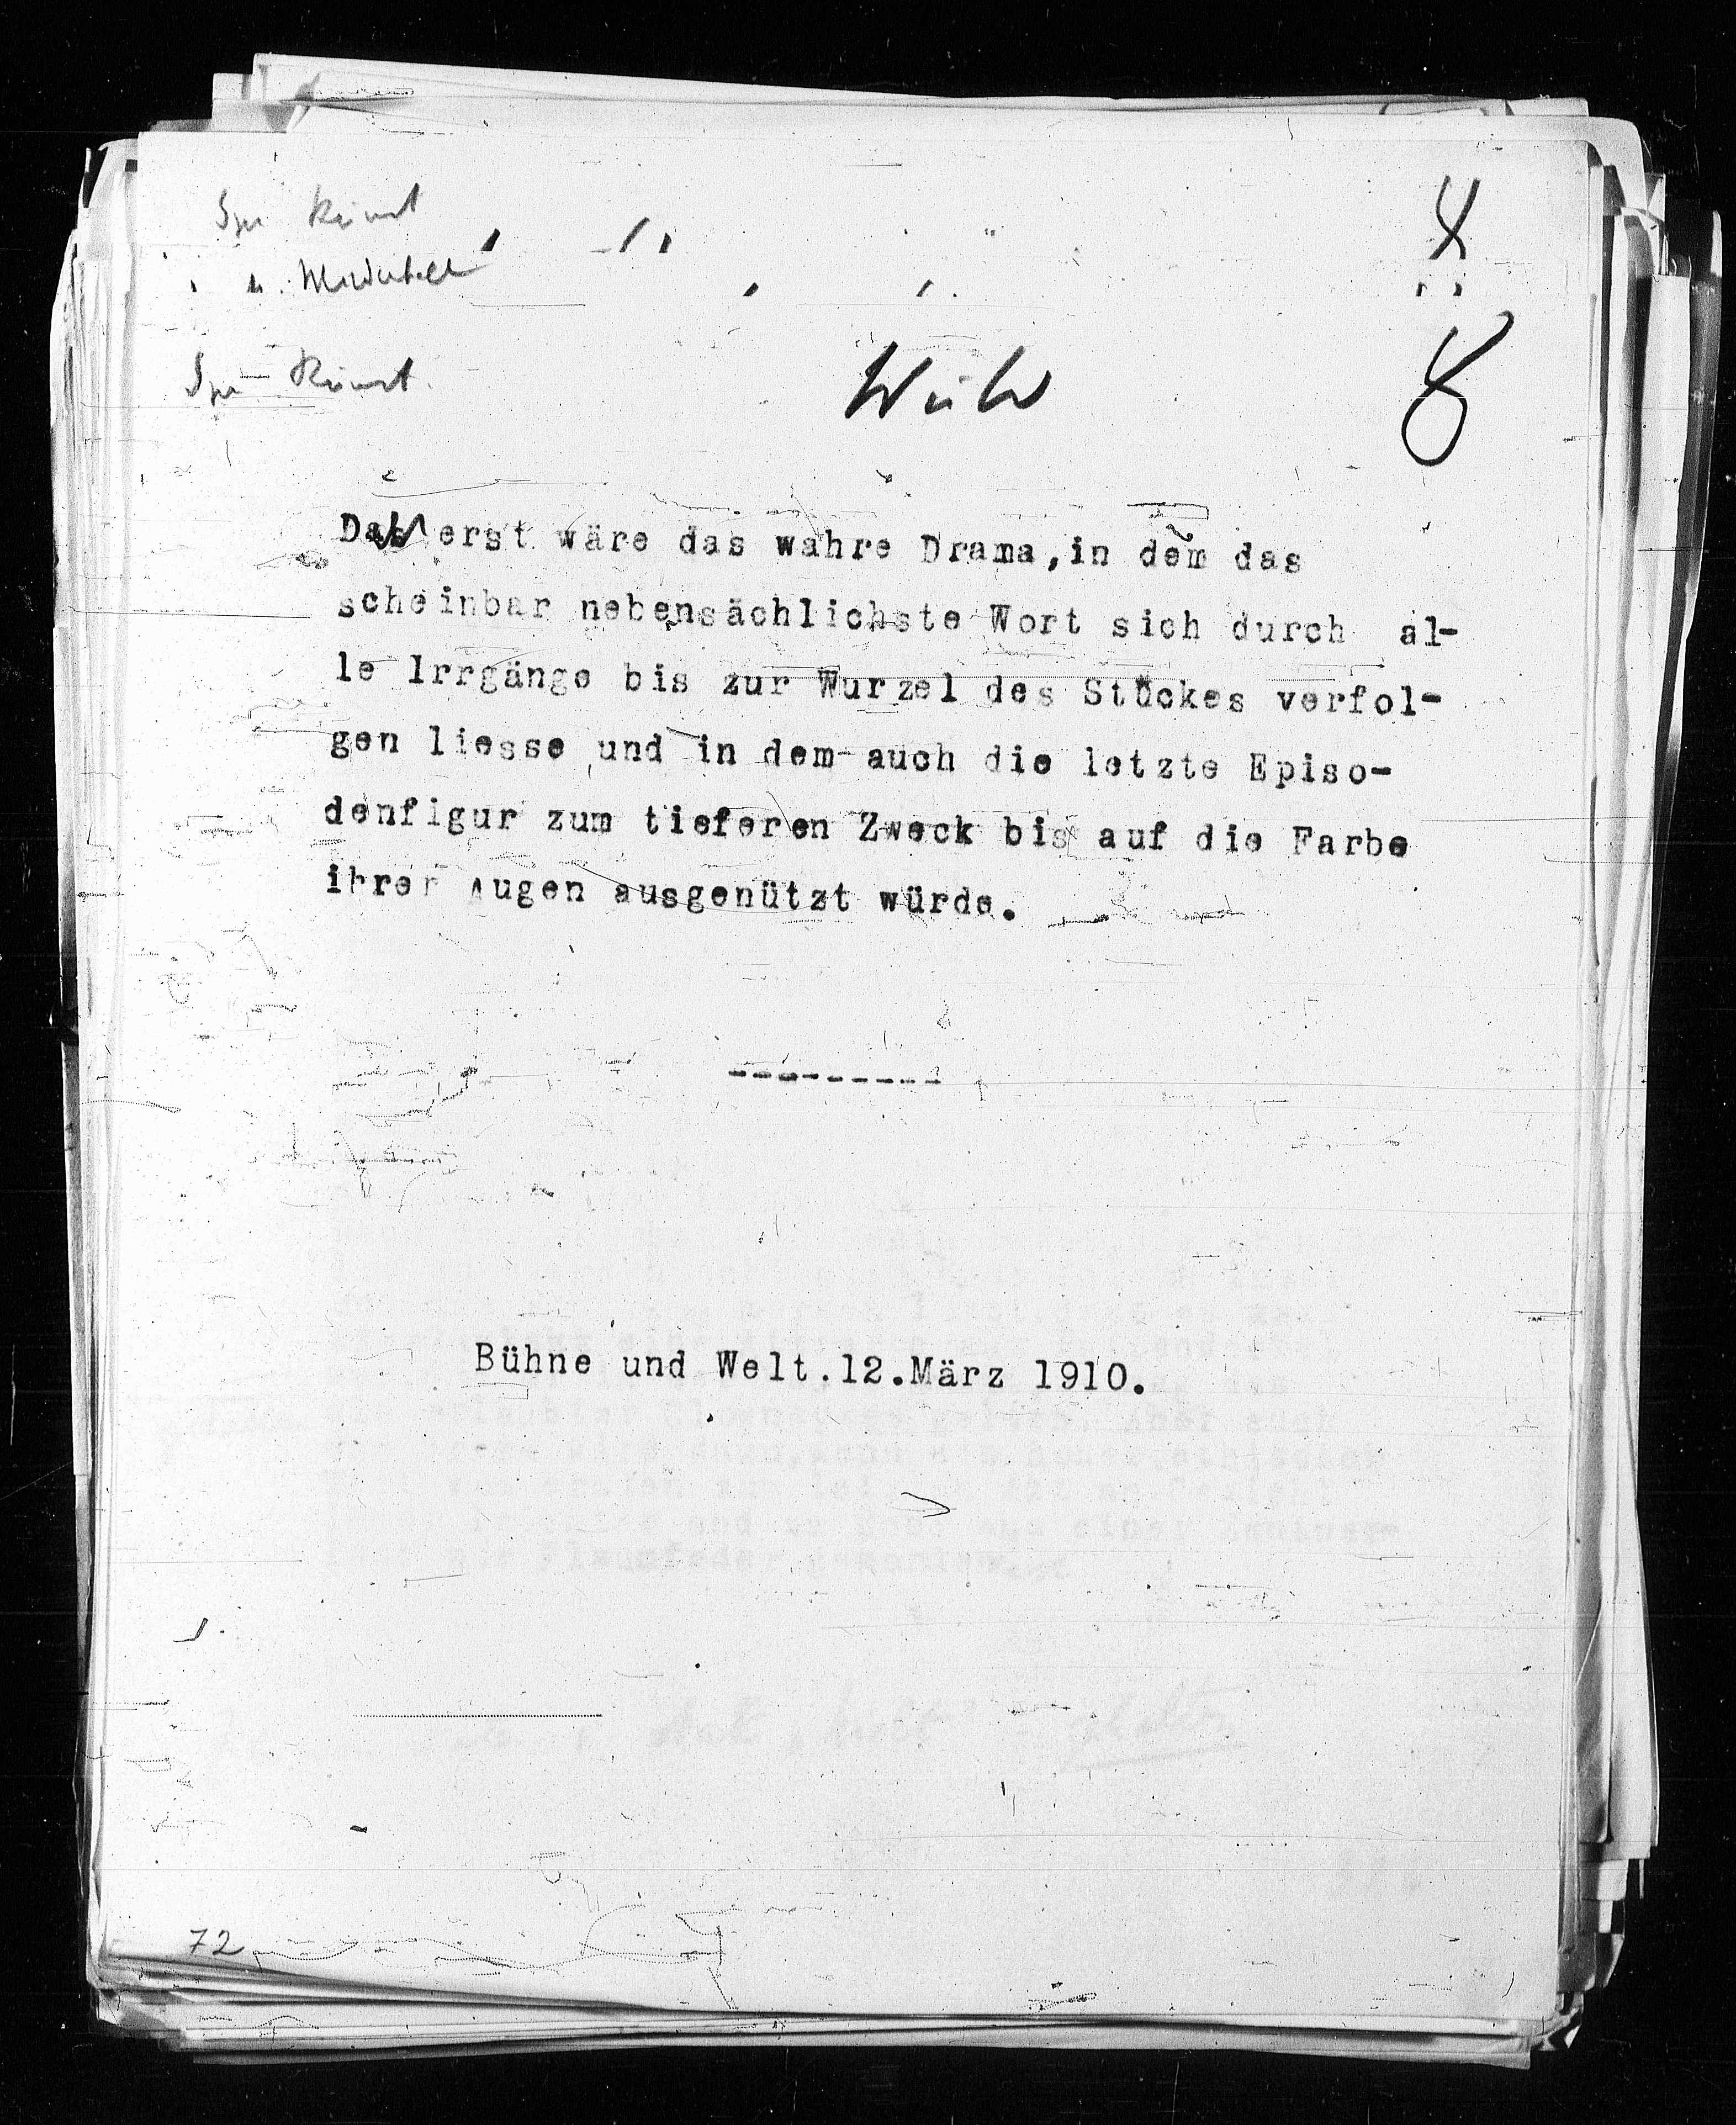 Kunst
Kunst.
8
Das erst wäre das wahre Drama,in dem das
scheinbar nebensächlichste Wort sich durch al-
le Irrgänge bis zur Wurzel des Stückes verfol-
gen liesse und in dem auch die letzte Episo-
denfigur zum tieferen Zweck bis auf die Farbe
ihrer Augen ausgenützt würde.
---------
Bühne und Welt.12.März 1910.
72